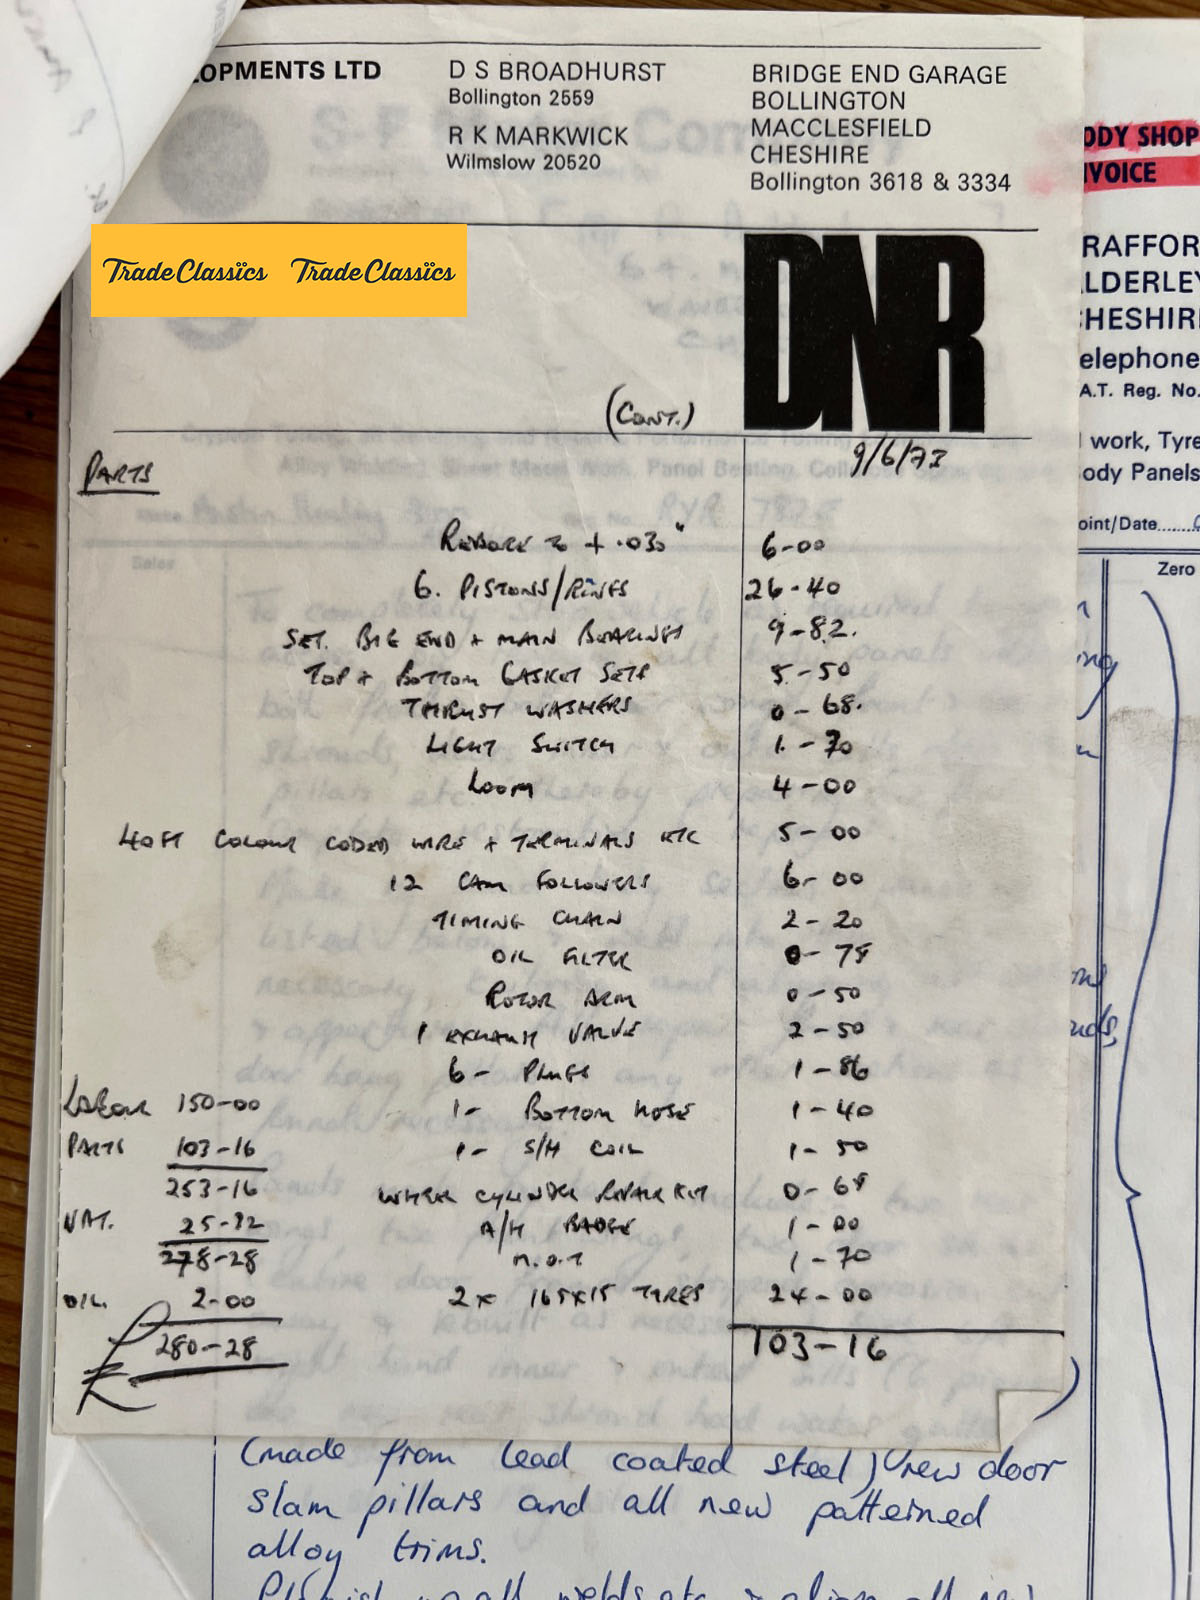 OPMENTS LTD
D S BROADHURST
Bollington 2559
R K MARKWICK
Wilmslow 20520
BRIDGE END GARAGE
BOLLINGTON
MACCLESFIELD
CHESHIRE
Bollington 3618 & 3334
TradeClassics TradeClassics
DNR
(CONT.)
9/6/73
PARTS
REBORE TO + .030" 6-00
6. PISTONS/RINGS 26-40
SET. BIG END + MAIN BEARINGS 9-82.
TOP + BOTTOM GASKET SETS 5-50
THRUST WASHERS 0-68.
LIGHT SWITCH 1-70
LOOM 4-00
40FT COLOUR CODED WIRE + TERMINALS ETC 5-00
12 CAM FOLLOWERS 6-00
TIMING CHAIN 2-20
OIL FILTER 0-75
ROTOR ARM 0-50
1 EXHAUST VALVE 2-50
6- PLUGS 1-86
1- BOTTOM HOSE 1-40
1- S/H COIL 1-50
WHEEL CYLINDER REPAIR KIT 0-65
A/H BADGE 1-00
M.O.T 1-70
2x 165x15 TYRES 24-00
103-16
LABOUR 150-00
PARTS 103-16
253-16
VAT. 25-12
278-28
OIL. 2-00
£ 280-28
(made from lead coated steel) new door
slam pillars and all new patterned
alloy trims.
ODY SHOP
VOICE
RAFFOR
LDERLEY
HESHIR
elephone
A.T. Reg. No.
work, Tyre
ody Panels
oint/Date
Zero